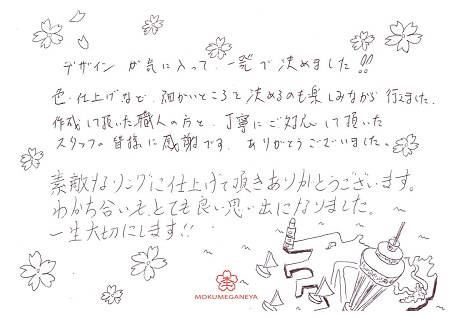 デザインが気に入って、一発で決めました!!
色、仕上げなど、細かいところを決めるのも楽しみながら行えました。
作成して頂いた職人の方と、丁寧にご対応して頂いた
スタッフの皆様に感謝です。ありがとうございました。
素敵なリングに仕上げて頂きありがとうございます。
わかち合いも、とても良い思い出になりました。
一生大切にします!!
MOKUMEGANEYA